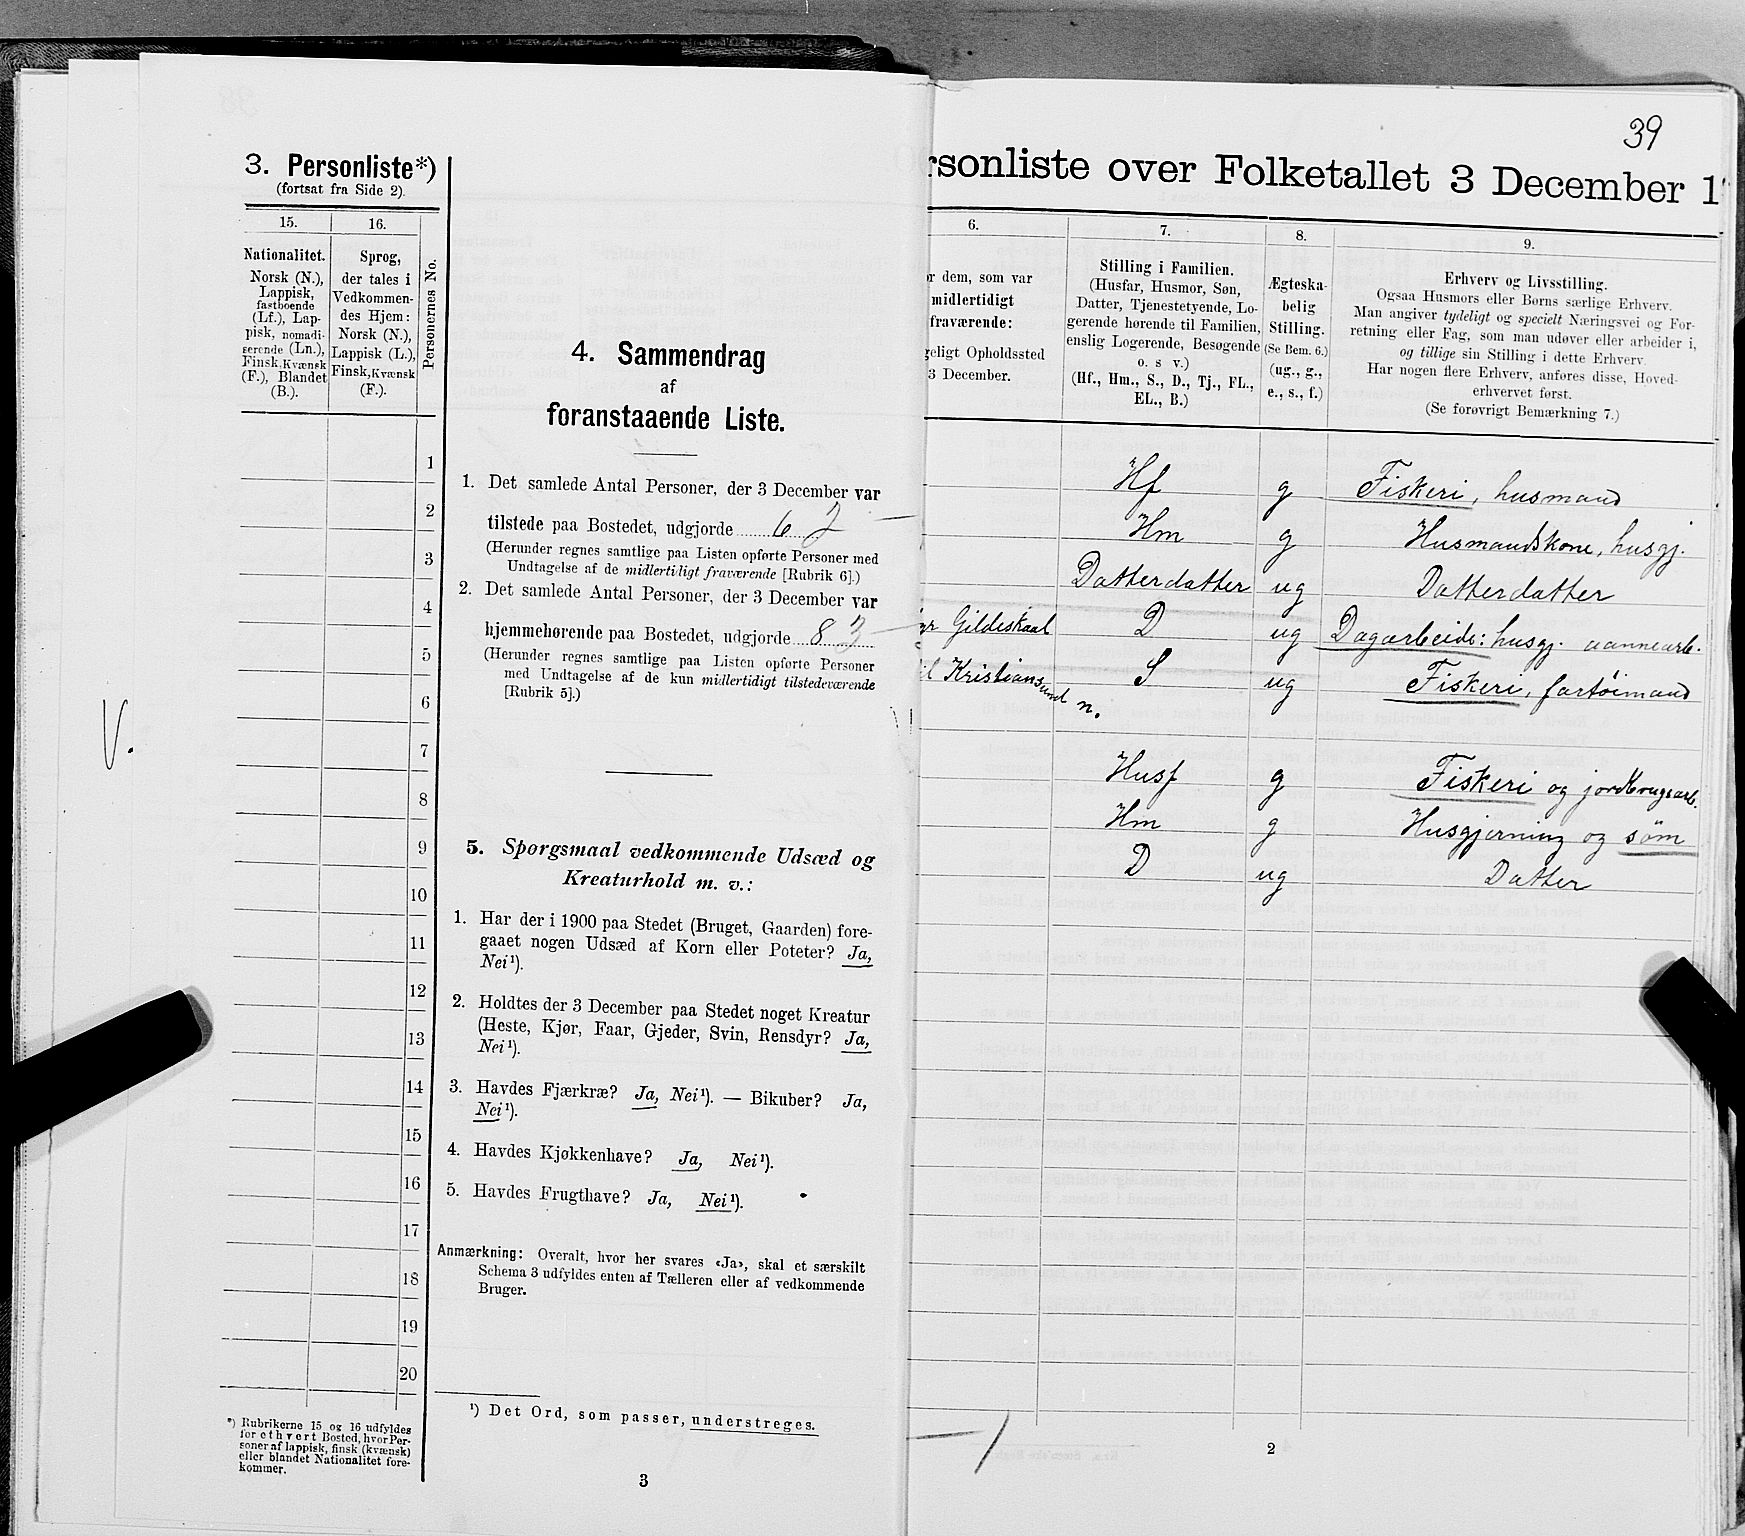 3. Personliste*)
(fortsat fra Side 2).
15.
16.
Personernes No.
Nationalitet.
Norsk (N.),
Lappisk,
fastboende
(Lf.), Lap-
pisk, nomadi-
serende (Ln.),
Finsk, Kvænsk
(F.), Blandet
(B.).
Sprog,
der tales i
Vedkommen-
des Hjem:
Norsk (N.),
Lappisk (L.),
Finsk, Kvænsk
(F.).
1
2
3
4
5
6
7
8
9
10
11
12
13
14
15
16
17
18
19
20
*) Rubrikerne 15 og 16 udfyldes
for ethvert Bosted, hvor Per-
soner af lappisk, finsk (kvænsk)
eller blandet Nationalitet fore-
kommer.
V.
4. Sammendrag
af
foranstaaende Liste.
1. Det samlede Antal Personer, der 3 December var
tilstede paa Bostedet, udgjorde 6 2
(Herunder regnes samtlige paa Listen opførte Personer med
Undtagelse af de midlertidigt fraværende [Rubrik 6].)
2. Det samlede Antal Personer, der 3 December var
hjemmehørende paa Bostedet, udgjorde 8 3
(Herunder regnes samtlige paa Listen opførte Personer
med Undtagelse af de kun midlertidigt tilstedeværende
[Rubrik 5].)
5. Spørgsmaal vedkommende Udsæd og
Kreaturhold m. v.:
1. Har der i 1900 paa Stedet (Bruget, Gaarden) fore-
gaaet nogen Udsæd af Korn eller Poteter? Ja,
Nei¹).
2. Holdtes der 3 December paa Stedet noget Kreatur
(Heste, Kjør, Faar, Gjeder, Svin, Rensdyr? Ja,
Nei¹).
3. Havdes Fjærkræ? Ja, Nei¹). — Bikuber? Ja,
Nei¹).
4. Havdes Kjøkkenhave? Ja, Nei¹).
5. Havdes Frugthave? Ja, Nei¹).
Anmærkning: Overalt, hvor her svares «Ja», skal et særskilt
Schema 3 udfyldes enten af Tælleren eller af vedkommende
Bruger.
¹) Det Ord, som passer, understreges.
3
39
rsonliste over Folketallet 3 December 1
6.
7.
8.
9.
r dem, som var
midlertidigt
fraværende:
geligt Opholdssted
3 December.
Stilling i Familien.
(Husfar, Husmor, Søn,
Datter, Tjenestetyende, Lo-
gerende hørende til Familien,
enslig Logerende, Besøgende
o. s v.)
(Hf., Hm., S., D., Tj., FL.,
EL., B.)
Ægteska-
belig
Stilling.
(Se Bem. 6.)
(ug., g.,
e., s., f.)
Erhverv og Livsstilling.
Ogsaa Husmors eller Børns særlige Erhverv.
Man angiver tydeligt og specielt Næringsvei og For-
retning eller Fag, som man udøver eller arbeider i,
og tillige sin Stilling i dette Erhverv.
Har nogen flere Erhverv, anføres disse, Hoved-
erhvervet først.
(Se forøvrigt Bemærkning 7.)
Hf g Fiskeri, husmand
Hm g Husmandskone, husgj.
Datterdatter ug Datterdatter
Gildeskaal D ug Dagarbeide: husgj.
til Kristiansund n. S ug Fiskeri, fartøimand
Husf g Fiskeri og jordbrugsarb.
Hm g Husgjerning og søm
D ug Datter
2